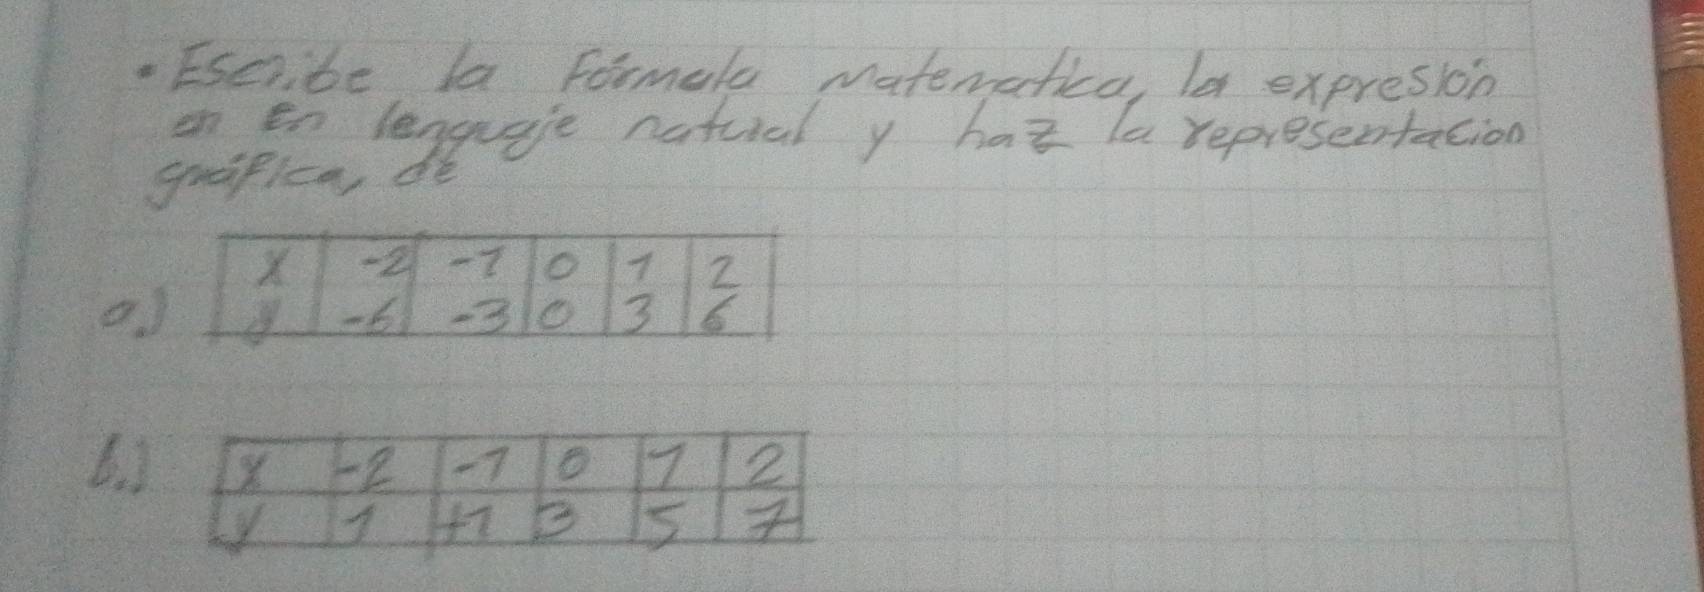 • Escribe la Fórmula Matematica, la expresión
en En lenguaje natural y haz la representacion
gráfica, de
a.) x -2 -1 0 1 2
y -6 -3 0 3 6
b.) x -2 -1 0 1 2
y 1 +1 3 5 7